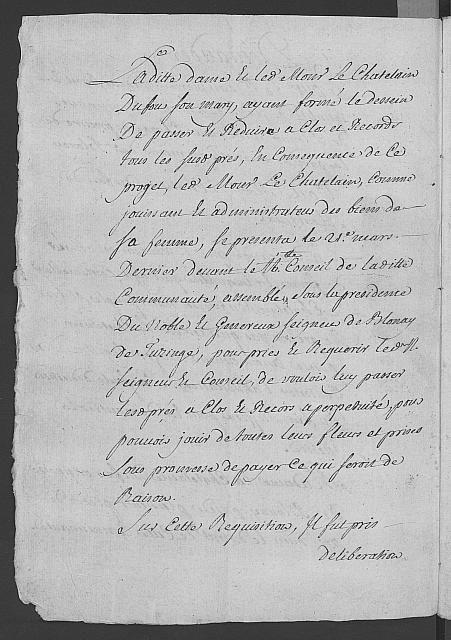 Laditte dame et led. Monsr. Le Chatelain
Dufou son mary, ayant formé le dessein
De passer et Reduire a Clos et Records
tous les susd. prés, En Consequence de Ce
projet, led. Monsr. Le Chatelain, comme
jouissant et administrateur des biens de
sa femme, se presenta le 21e. mars
Dernier devant le Conseil de laditte
Communauté, assemblé, sous la presidence
Du Noble et Genereux seigneur de Blonay
de, pour prier et Requerir led.
seigneur et Conseil, de vouloir luy passer
lesd. prés a Clos et Recors a perpetuité, pour
pouvoir jouir de toutes leurs fleurs et prises
sous promesse de payer Ce qui seroit de
Raison.
Sur Cette Requisition, Il fut pris
deliberation